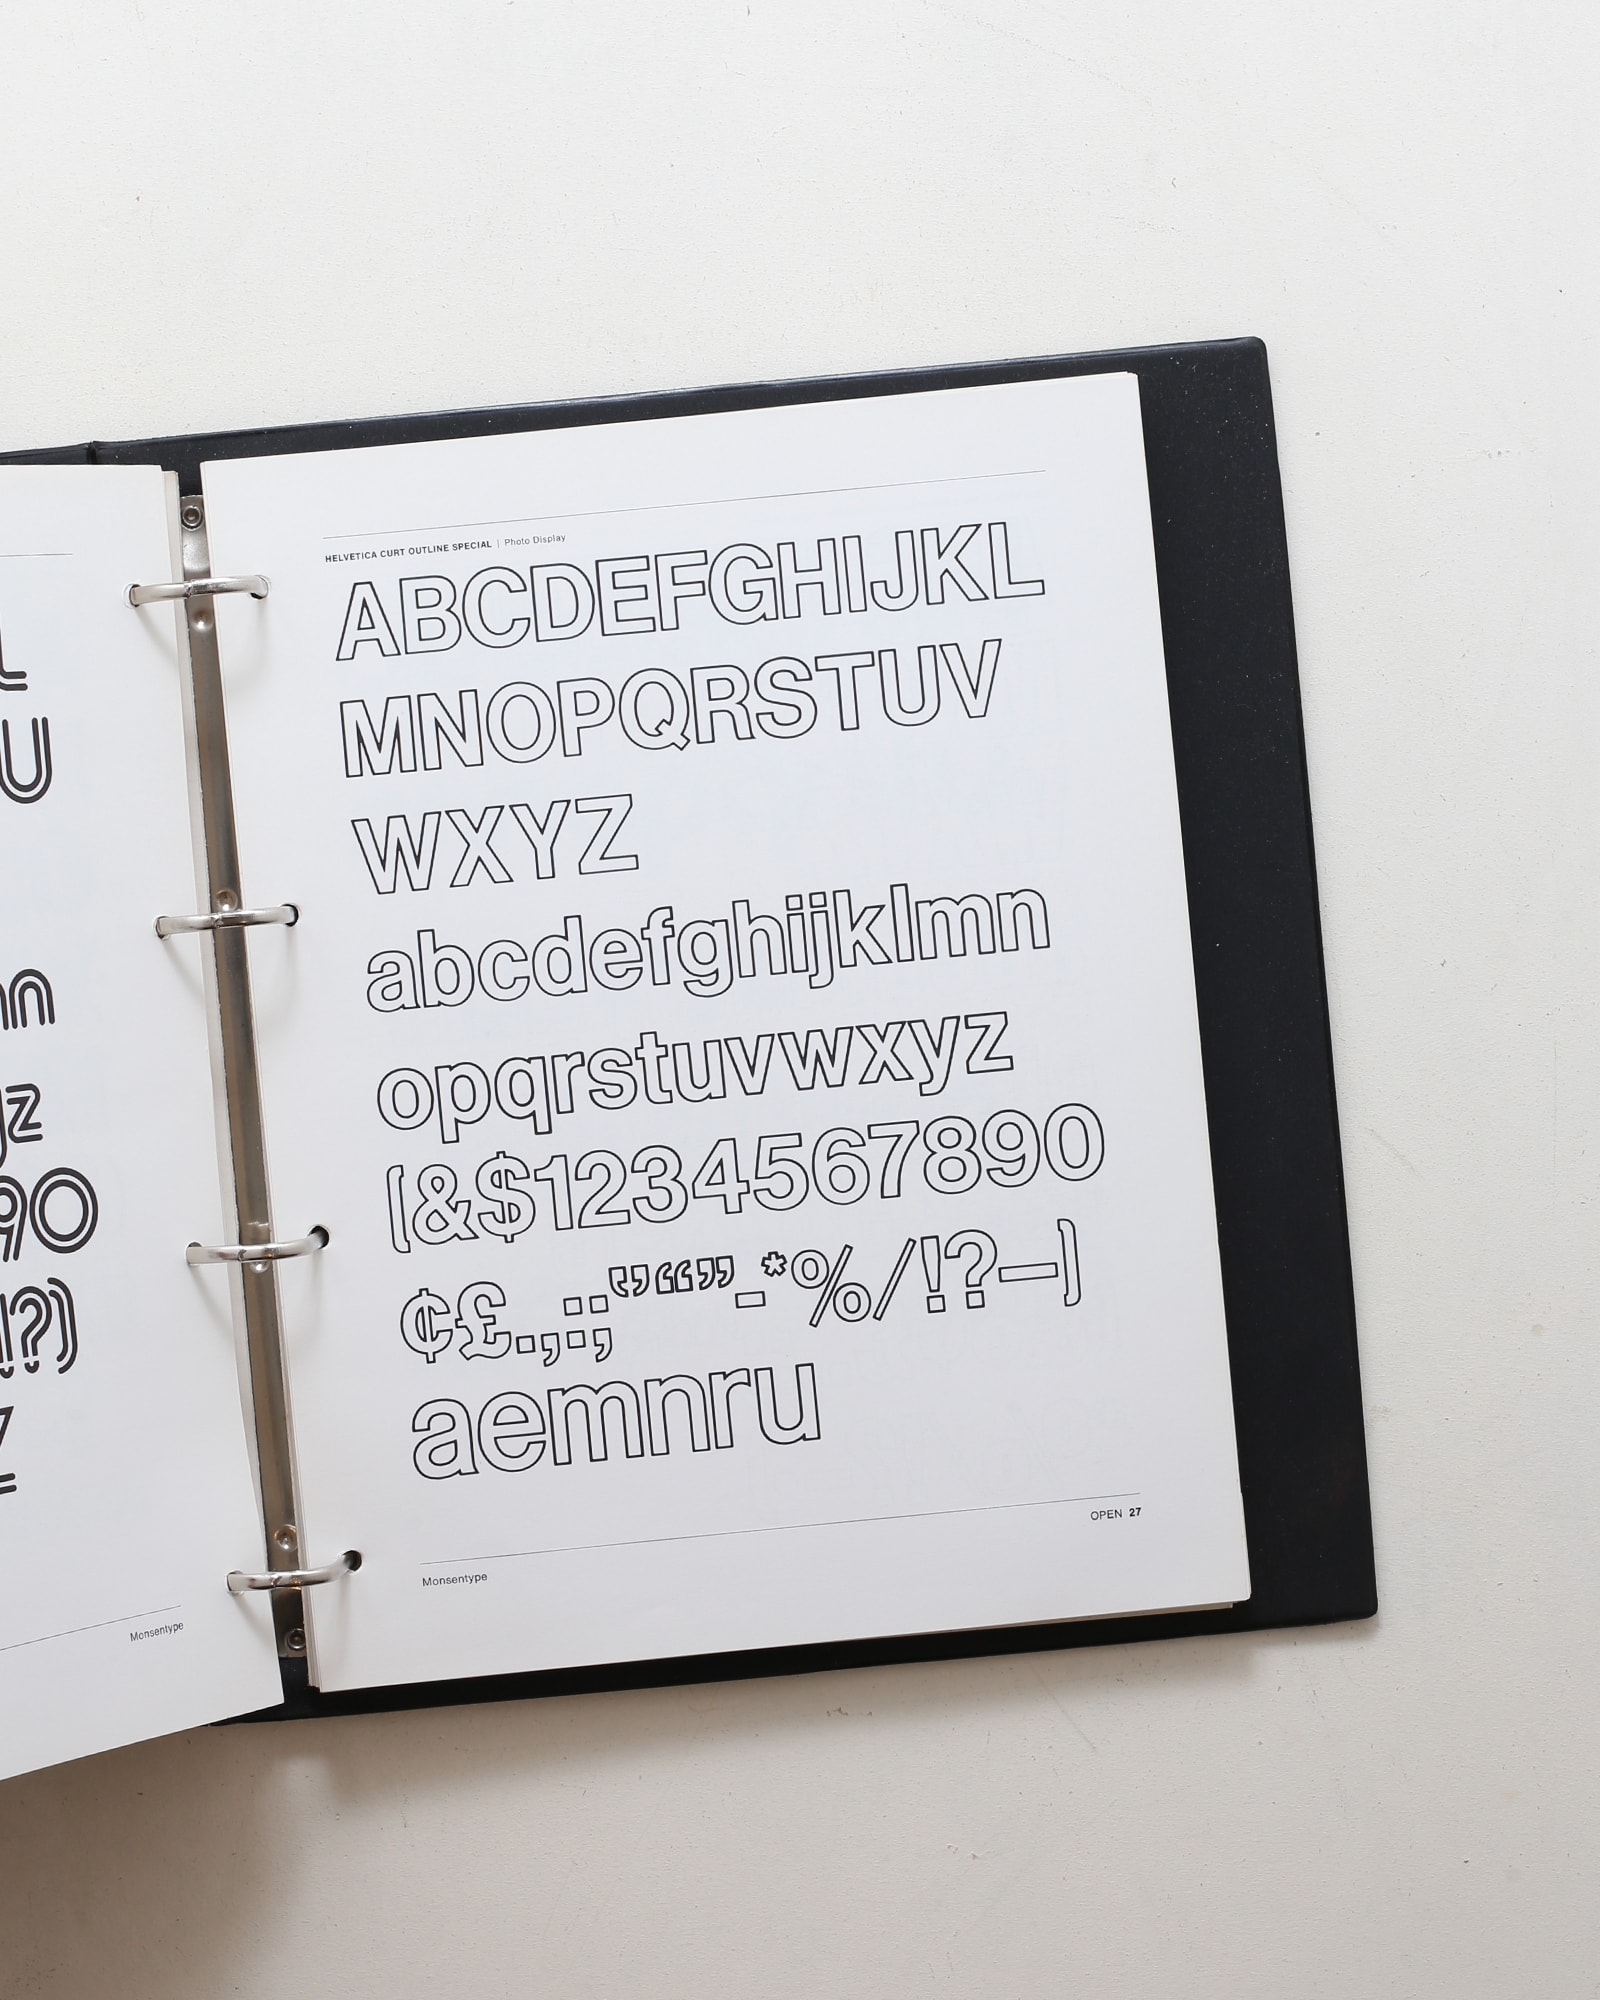 L
U
mn
yz
90
!?)
Z
Monsentype
HELVETICA CURT OUTLINE SPECIAL | Photo Display
ABCDEFGHIJKL
MNOPQRSTUV
WXYZ
abcdefghijklmn
opqrstuvwxyz
(&$1234567890
¢£.,:;‛’“”-*%/!?—)
aemnru
OPEN 27
Monsentype